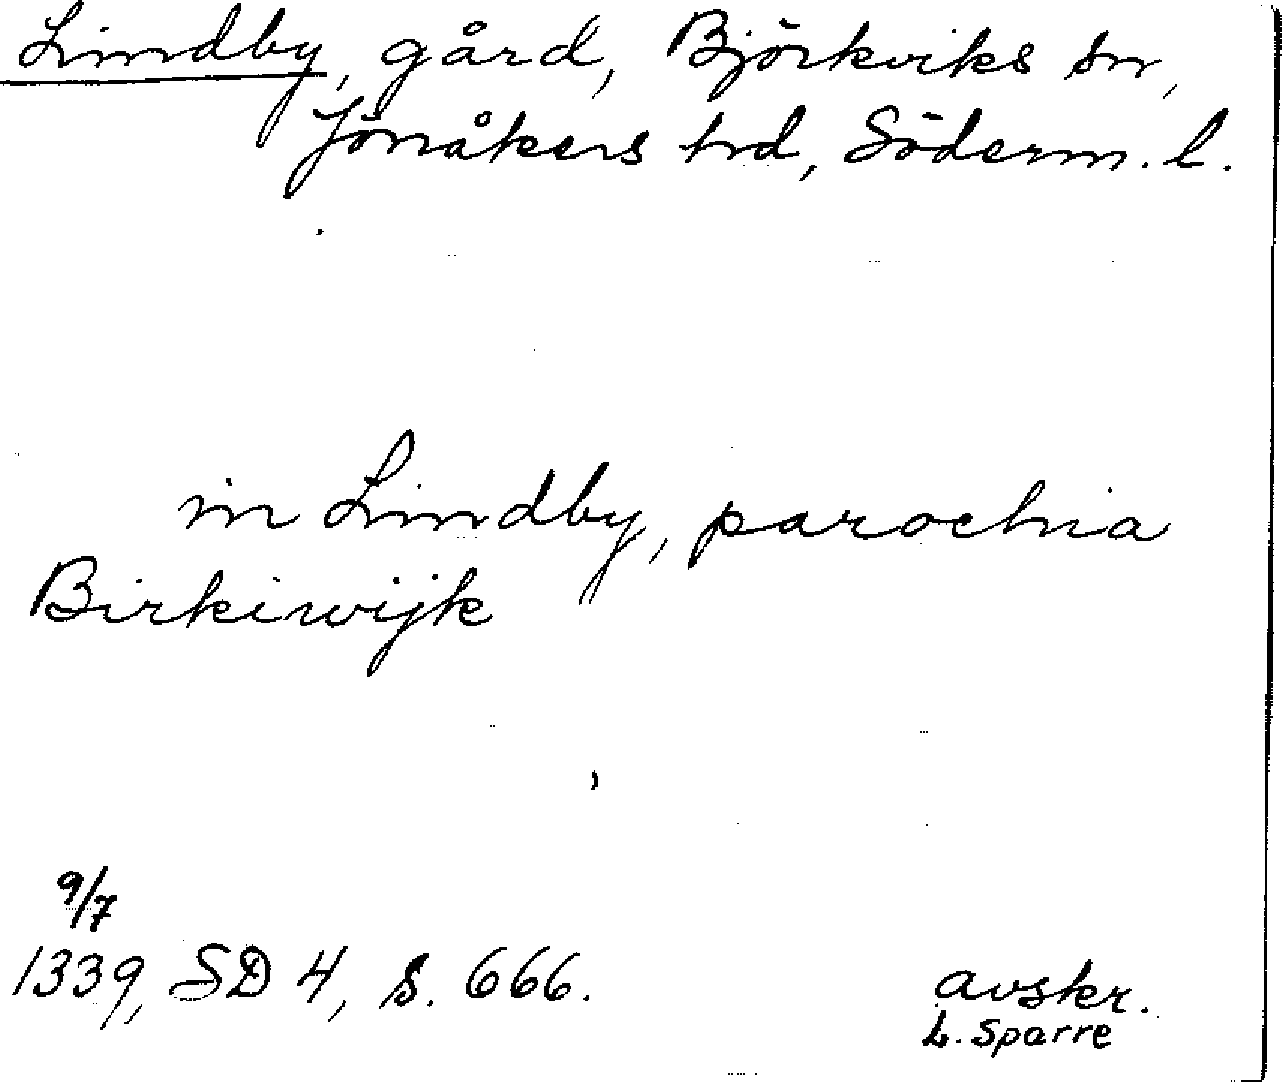 Lindby, gård, Björkviks sn,
Jönåkers hrd, Söderm. l.
in Lindby, parochia
Birkiwijk
9/7
1339, SD 4, s. 666.
avskr.
L. Sparre